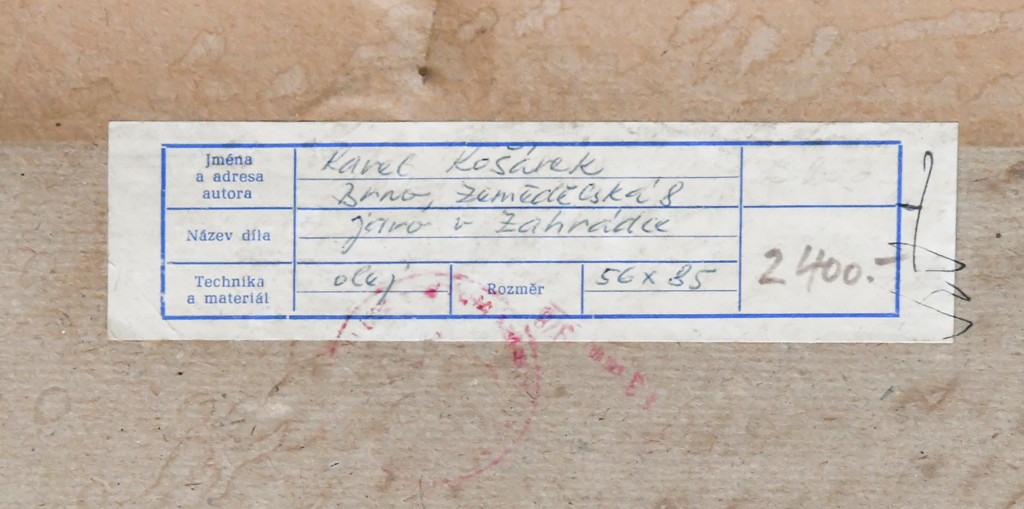 Jména
a adresa
autora
Karel Košárek
Brno, Zemědělská 8
Název díla
jaro v Zahrádce
Technika
a materiál
olej
Rozměr
56 x 85
2 400.-